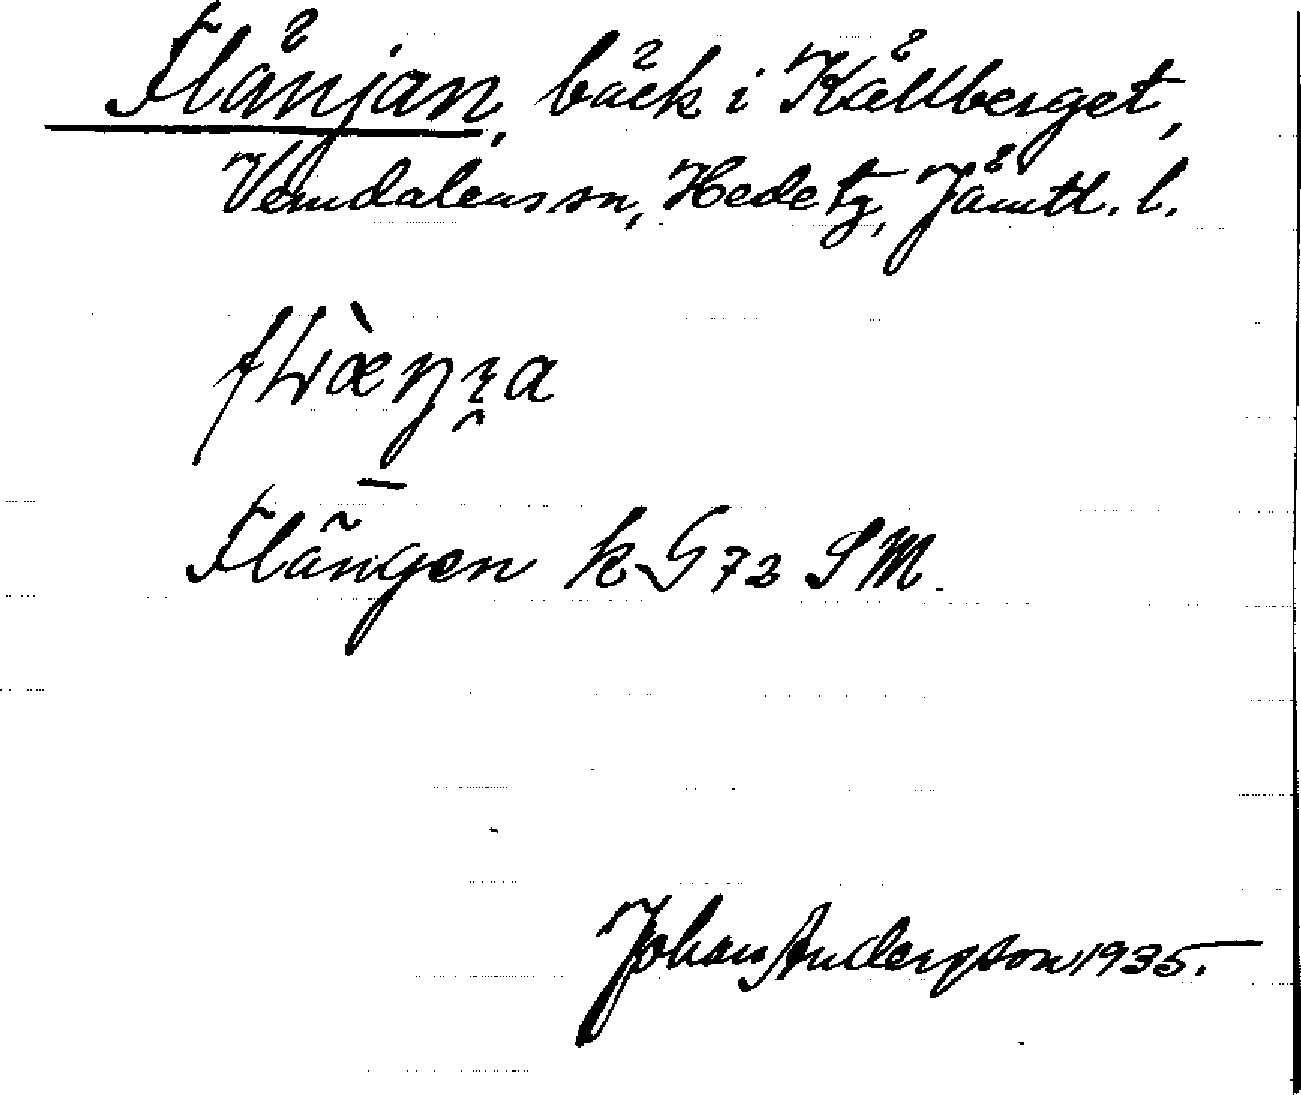 Flånjan, bäck i Kållberget,
Vemdalens sn, Hede tg, Jämtl. l.
Flången k G 72 SM.
Johan Anderson 1935.